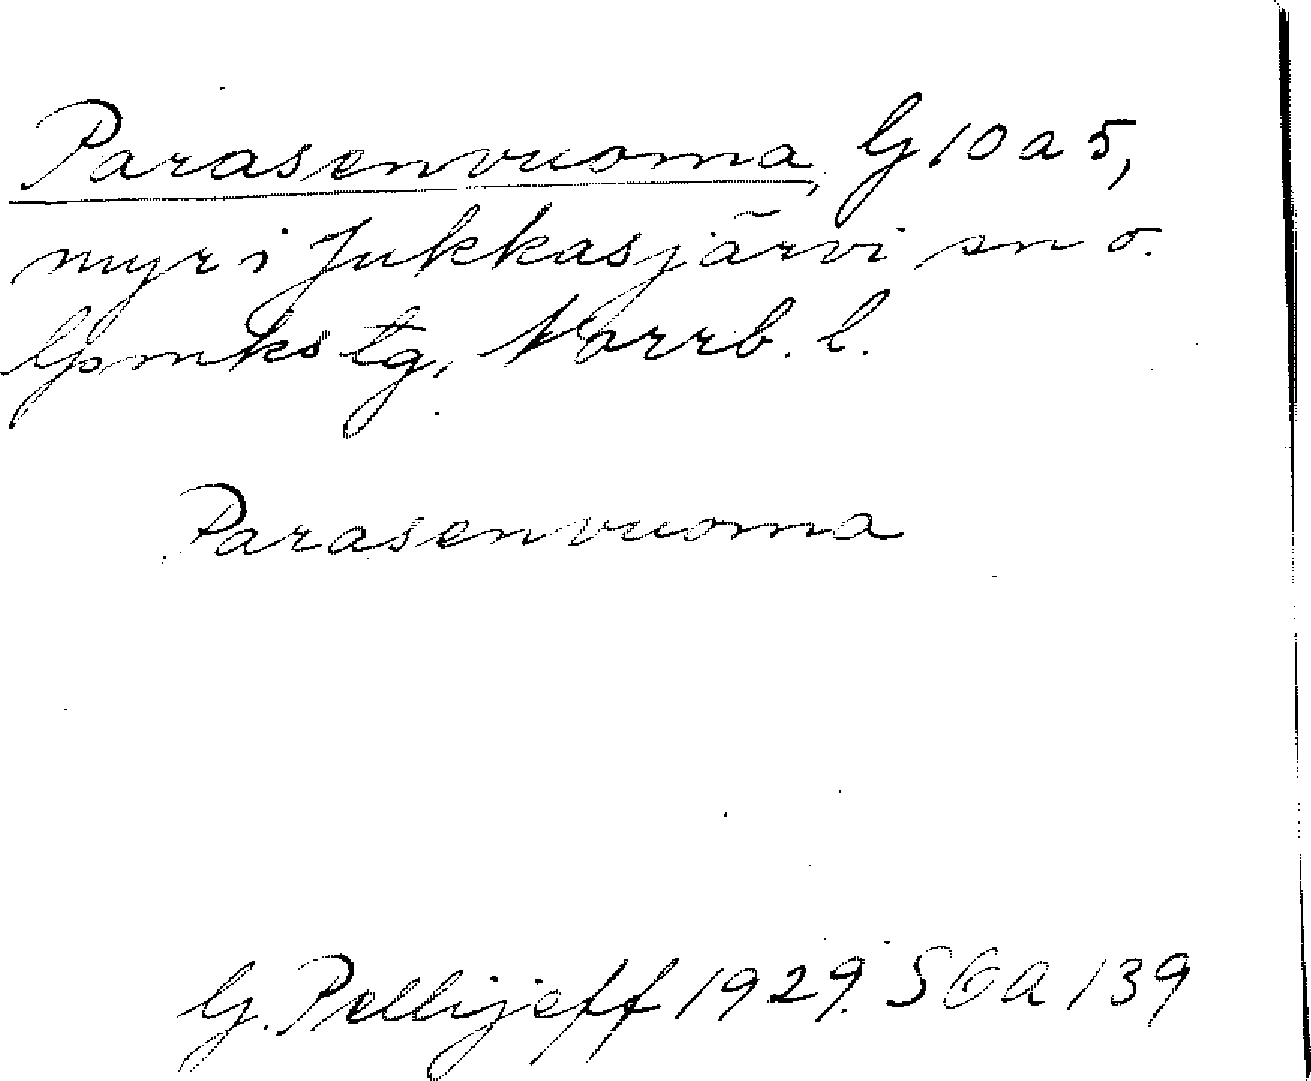 Parasenvuoma, G 10 a 5,
myr i Jukkasjärvi sn o.
lpmks tg, Norrb. l.
Parasenvuoma
G. Pellijeff 1929. SOA 139